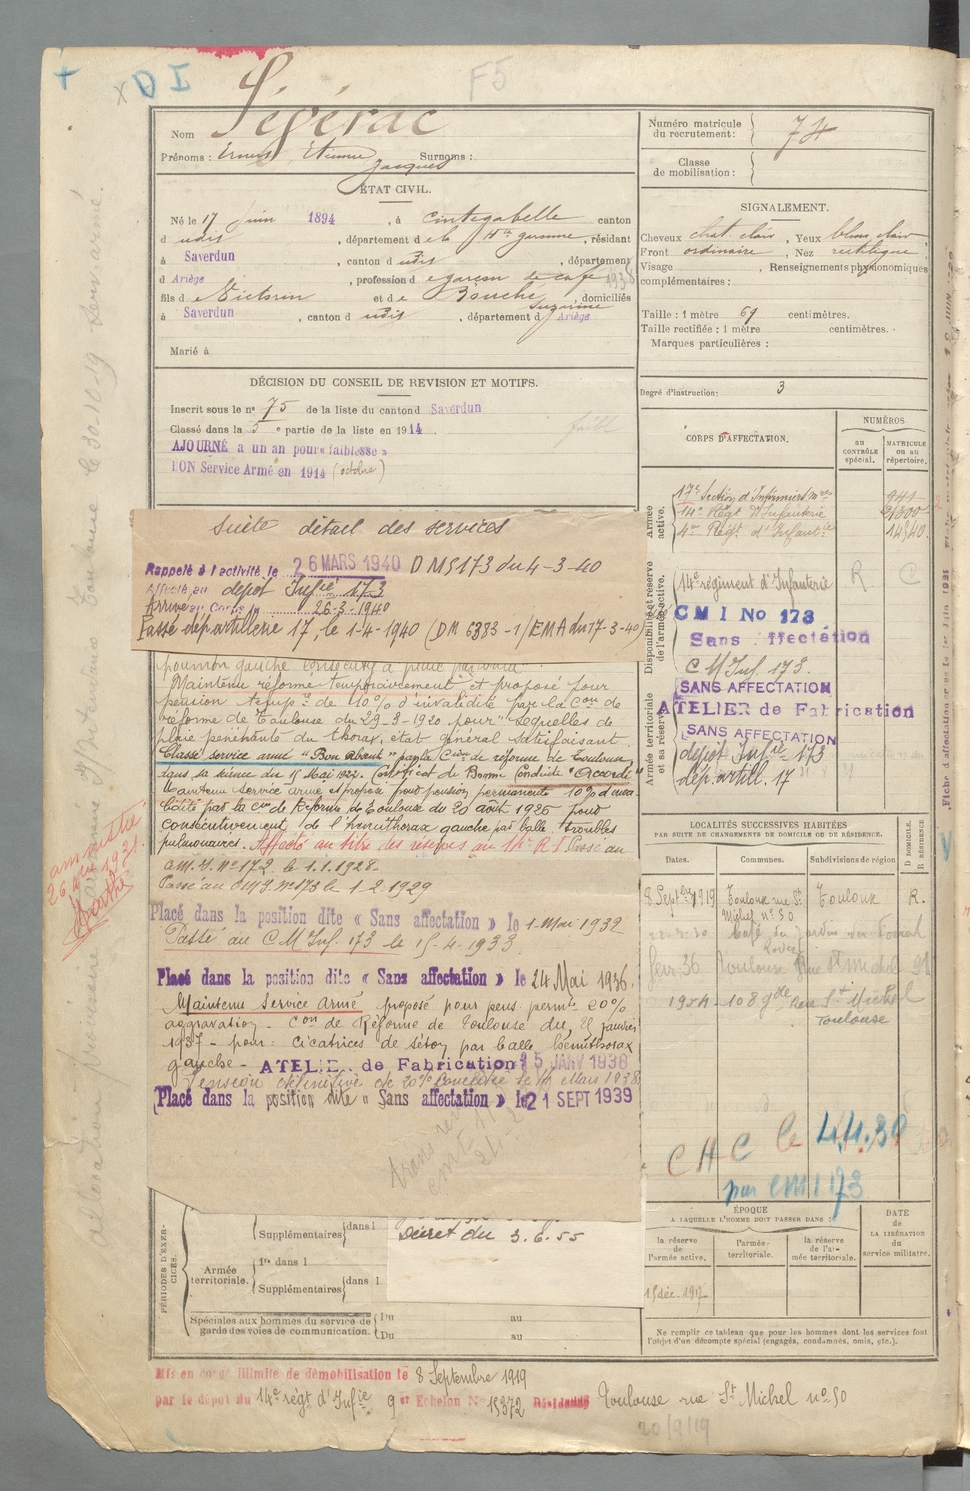 x D I
F5
Nom Ségérac
Prénoms : Ernest, Etienne Surnoms :
Jacques
ÉTAT CIVIL.
Né le 17 juin 1894, à Cintegabelle canton
d udit, département de la Hte garonne, résidant
à Saverdun, canton d udit, département
d Ariège, profession de garçon de café 1938
fils de Victorin et de Bouché, domiciliés
Suzanne
à Saverdun, canton d udit, département d Ariège
Marié à
DÉCISION DU CONSEIL DE REVISION ET MOTIFS.
Inscrit sous le n° 75 de la liste du canton d Saverdun
Classé dans la 5 e partie de la liste en 1914
AJOURNÉ à un an pour « faiblesse »
BON Service Armé en 1914
Numéro matricule
du recrutement : 74
Classe
de mobilisation :
SIGNALEMENT.
Cheveux chat. clair, Yeux bleus clair
Front ordinaire, Nez rectiligne
Visage , Renseignements physionomiques
complémentaires :
Taille : 1 mètre 69 centimètres.
Taille rectifiée : 1 mètre centimètres.
Marques particulières :
Degré d'instruction : 3
CORPS D'AFFECTATION.
NUMÉROS
au
CONTRÔLE
spécial.
MATRICULE
ou au
répertoire.
Armée
active.
17e Section d'Infirmiers mres 941
14e Régt d'Infanterie
4me Régt d'Infantie
Disponibilité et réserve
de l'armée active.
14e régiment d'Infanterie R C
CMI No 173
Sans affectation
CM Inf. 173.
SANS AFFECTATION
ATELIER de Fabrication
Armée territoriale
et sa réserve
SANS AFFECTATION
dépôt Infrie 173
dép. artill. 17
Suite détail des services
Rappelé à l'activité le 26 MARS 1940 DM 5173 du 4-3-40
Affecté au dépôt Infrie 173
Arrivé au Corps le 26-3-1940
Passé dép. artillerie 17, le 1-4-1940 (DM 6383-1/EMA du 17-3-40)
poumon gauche consécutif à plaie par balle
Maintenu réformé temporairement et proposé pour
pension tempre de 10% d'invalidité par la Con de
réforme de Toulouse du 29-3-1920 pour "séquelles de
plaie pénétrante du thorax, état général satisfaisant.
Classé service armé "Bon absent" par la Con de réforme de Toulouse
dans sa séance du 15 Mai 1924. Certificat de Bonne Conduite "Accordé"
Maintenu service armé et proposé pour pension permanente 10% d'inva-
lidité par la Con de Réforme de Toulouse du 20 août 1925 pour
consécutivement de l'hémithorax gauche par balle troubles
pulmonaires. Affecté au titre des réserves au 14e R.I. Passé au
C.M.I. N° 172 le 1.1.1928.
Passé au CMI N° 173 le 1-2-1929
Placé dans la position dite « Sans affectation » le 1-Mai 1932
Passé au C M Inf. 173 le 15-4-1933
Placé dans la position dite « Sans affectation » le 24 Mai 1936.
Maintenu Service Armé proposé pour pens. permte 20%
aggravation - Con de Réforme de Toulouse du 28 janvier
1937 - pour : cicatrices de séton par balle hémithorax
gauche - ATELIER de Fabrication 5 JANV 1938
Pension définitive de 20% Concédée le 14 Mars 1938
Placé dans la position dite « Sans affectation » le 21 SEPT 1939
LOCALITÉS SUCCESSIVES HABITÉES
PAR SUITE DE CHANGEMENTS DE DOMICILE OU DE RÉSIDENCE.
D DOMICILE.
R RÉSIDENCE
Dates. Communes. Subdivisions de région
8 Septbre 1919 Toulouse rue St Toulouse R.
Michel n° 50
fév. 36 Toulouse rue St Michel 91
1954 - 108 gde Rue St Michel
Toulouse
CHC le 4.4.39
par CMI 173
ÉPOQUE
A LAQUELLE L'HOMME DOIT PASSER DANS :
la réserve
de
l'armée active.
l'armée
territoriale.
la réserve
de l'ar-
mée territoriale.
DATE
de
LA LIBÉRATION
du
service militaire.
15 déc. 1917
Ne remplir ce tableau que pour les hommes dont les services font
l'objet d'un décompte spécial (engagés, condamnés, omis, etc.).
PÉRIODES D'EXER-
CICES.
Supplémentaires dans l
Armée
territoriale.
1re dans l
Supplémentaires dans l
Décret du 3.6.55
Spéciales aux hommes du service de
garde des voies de communication.
Du au
Du au
Mis en congé illimité de démobilisation le 8 Septembre 1919
par le dépôt du 14e régt d'Infie 9 er Échelon N° 15372 Résidence Toulouse rue St Michel n° 50
20/9/19
amnistié
26 1921.